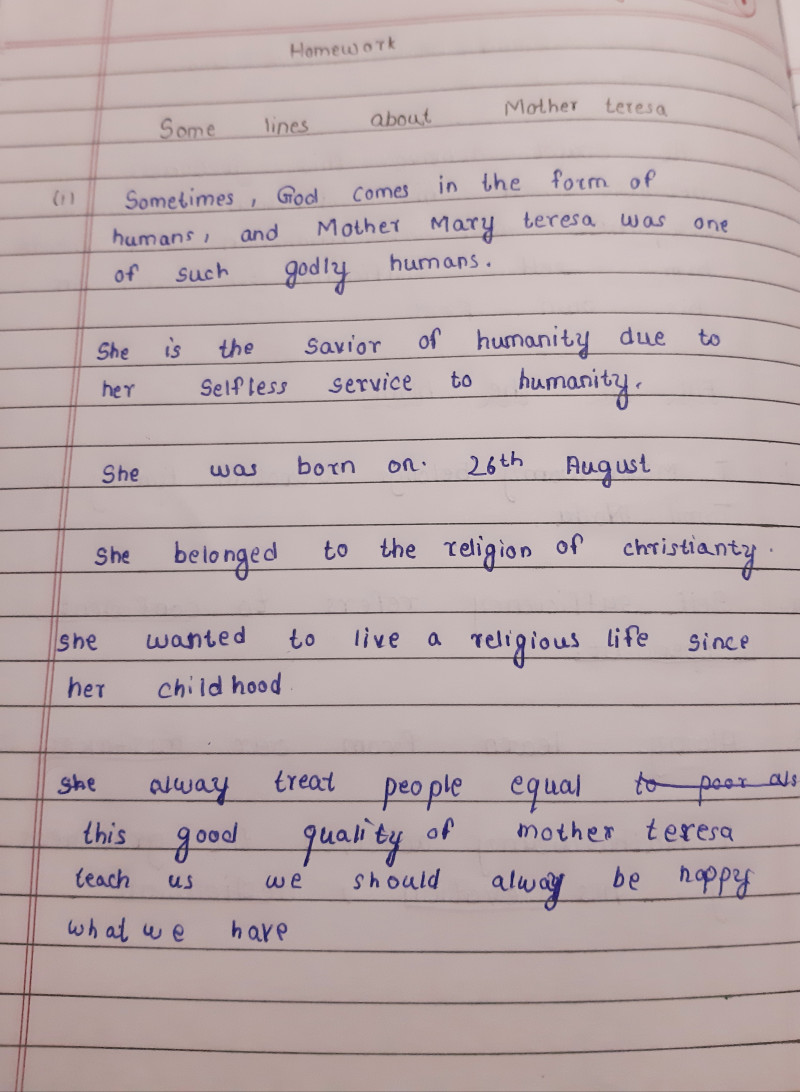 Homework
Some lines about Mother teresa
(1) Sometimes, God comes in the form of
humans, and Mother Mary teresa was one
of such godly humans.
She is the savior of humanity due to
her selfless service to humanity.
She was born on. 26th August
She belonged to the religion of christianty.
she wanted to live a religious life since
her childhood
she alway treat people equal to poor als
this good quality of mother teresa
teach us we should alway be happy
what we have